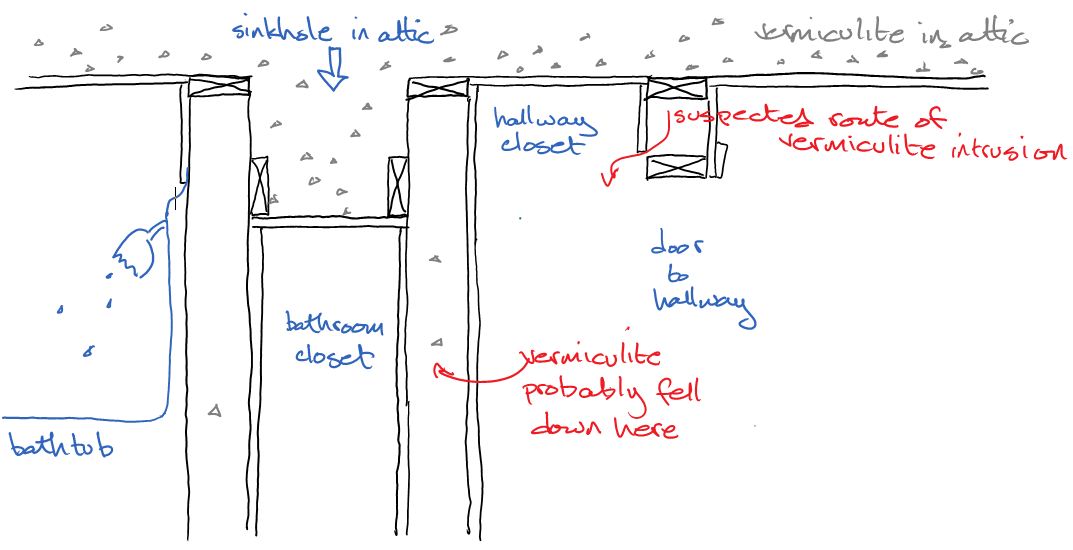 sinkhole in attic
vermiculite in attic
hallway
closet
suspected route of
vermiculite intrusion
door
to
hallway
bathroom
closet
vermiculite
probably fell
down here
bathtub